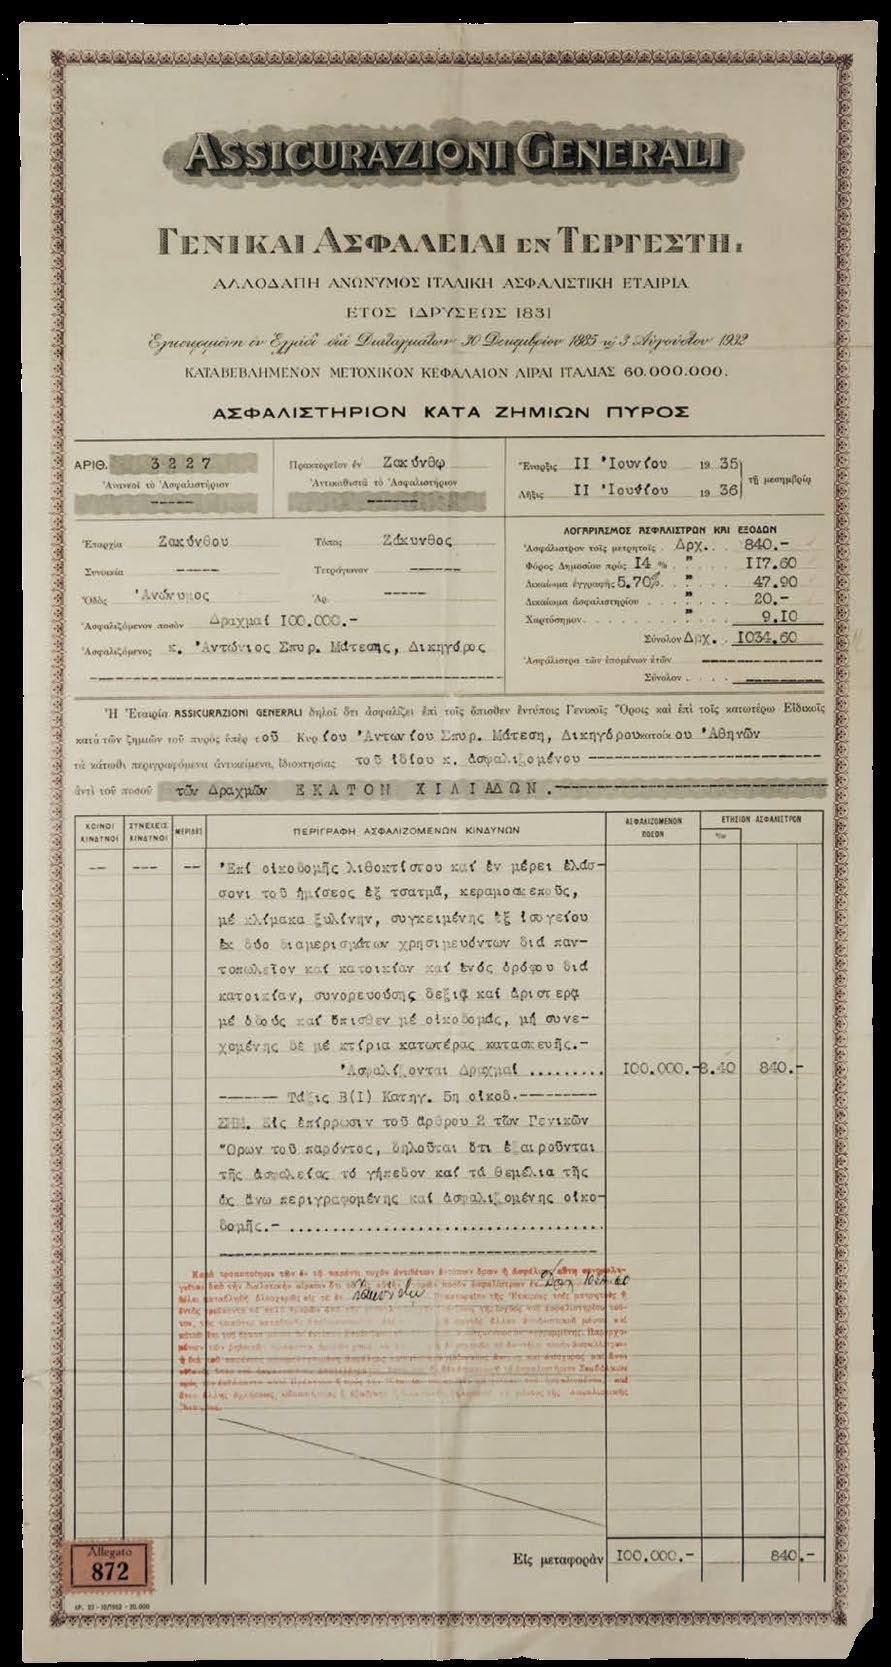 ASSICURAZIONI GENERALI
ΓΕΝΙΚΑΙ ΑΣΦΑΛΕΙΑΙ ΕΝ ΤΕΡΓΕΣΤΗ.
ΑΛΛΟΔΑΠΗ ΑΝΩΝΥΜΟΣ ΙΤΑΛΙΚΗ ΑΣΦΑΛΙΣΤΙΚΗ ΕΤΑΙΡΙΑ
ΕΤΟΣ ΙΔΡΥΣΕΩΣ 1831
Ἐγκεκριμένη ἐν Ἑλλάδι διὰ Διαταγμάτων 30 Δεκεμβρίου 1885 καὶ 3 Αὐγούστου 1932
ΚΑΤΑΒΕΒΛΗΜΕΝΟΝ ΜΕΤΟΧΙΚΟΝ ΚΕΦΑΛΑΙΟΝ ΛΙΡΑΙ ΙΤΑΛΙΑΣ 60.000.000.
ΑΣΦΑΛΙΣΤΗΡΙΟΝ ΚΑΤΑ ΖΗΜΙΩΝ ΠΥΡΟΣ
ΑΡΙΘ. 3227
Ἀνανεοῖ τὸ Ἀσφαλιστήριον
Πρακτορεῖον ἐν Ζακύνθῳ
Ἀντικαθιστᾷ τὸ Ἀσφαλιστήριον
Ἔναρξις II Ἰουνίου 1935
Λῆξις II Ἰουνίου 1936
τῇ μεσημβρίᾳ
Ἐπαρχία Ζακύνθου Τόπος Ζάκυνθος
Συνοικία ----- Τετράγωνον -----
Ὁδὸς Ἀνώνυμος Ἀρ. -----
Ἀσφαλιζόμενον ποσὸν Δραχμαί I00.000.-
Ἀσφαλιζόμενος κ. Ἀντώνιος Σπυρ. Μάτεσης, Δικηγόρος
ΛΟΓΑΡΙΑΣΜΟΣ ΑΣΦΑΛΙΣΤΡΩΝ ΚΑΙ ΕΞΟΔΩΝ
Ἀσφάλιστρον τοῖς μετρητοῖς . Δρχ. . 840.-
Φόρος Δημοσίου πρὸς I4 % . . " . . II7.60
Δικαίωμα ἐγγραφῆς 5.70% . . " . . 47.90
Δικαίωμα ἀσφαλιστηρίου . . . " . . 20.-
Χαρτόσημον . . . " . . 9.I0
Σύνολον Δρχ. . I034.60
Ἀσφάλιστρα τῶν ἑπομένων ἐτῶν -----
Σύνολον . . . .
Ἡ Ἑταιρία ASSICURAZIONI GENERALI δηλοῖ ὅτι ἀσφαλίζει ἐπὶ τοῖς ὄπισθεν ἐντύποις Γενικοῖς Ὅροις καὶ ἐπὶ τοῖς κατωτέρω Εἰδικοῖς
κατὰ τῶν ζημιῶν τοῦ πυρὸς ὑπὲρ τοῦ Κυρίου Ἀντωνίου Σπυρ. Μάτεση, Δικηγόρου κατοίκου Ἀθηνῶν
τὰ κάτωθι περιγραφόμενα ἀντικείμενα, ἰδιοκτησίας τοῦ ἰδίου κ. ἀσφαλιζομένου
ἀντὶ τοῦ ποσοῦ τῶν Δραχμῶν ΕΚΑΤΟΝ ΧΙΛΙΑΔΩΝ.
ΚΟΙΝΟΙ ΚΙΝΔΥΝΟΙ ΣΥΝΕΧΕΙΣ ΚΙΝΔΥΝΟΙ ΜΕΡΙΔΕΣ ΠΕΡΙΓΡΑΦΗ ΑΣΦΑΛΙΖΟΜΕΝΩΝ ΚΙΝΔΥΝΩΝ ΑΣΦΑΛΙΖΟΜΕΝΟΝ ΠΟΣΟΝ ΕΤΗΣΙΟΝ ΑΣΦΑΛΙΣΤΡΟΝ ‰
Ἐπί οἰκοδομῆς λιθοκτίστου καί ἐν μέρει ἐλάσ-
σονι τοῦ ἡμίσεος ἐξ τσατμᾶ, κεραμοσκεποῦς,
μέ κλίμακα ξυλίνην, συγκειμένης ἐξ ἰσογείου
ἐκ δύο διαμερισμάτων χρησιμευόντων διά παν-
τοπωλεῖον καί κατοικίαν καί ἑνός ὀρόφου διά
κατοικίαν, συνορευούσης δεξιᾷ καί ἀριστερᾷ
μέ ὁδούς καί ὄπισθεν μέ οἰκοδομάς, μή συνε-
χομένης δέ μέ κτίρια κατωτέρας κατασκευῆς.-
Ἀσφαλίζονται Δραχμαί ......... I00.000.- 8.40 840.-
------ Τάξις Β(I) Κατηγ. 5η οἰκοδ.-------
ΣΗΜ. Εἰς ἐπίρρωσιν τοῦ ἄρθρου 2 τῶν Γενικῶν
Ὅρων τοῦ παρόντος, δηλοῦται ὅτι ἐξαιροῦνται
τῆς ἀσφαλείας τό γήπεδον καί τά θεμέλια τῆς
ὡς ἄνω περιγραφομένης καί ἀσφαλιζομένης οἰκο-
δομῆς.-
Κατὰ τροποποίησιν τῶν ἐν τῷ παρόντι τυχὸν ἀντιθέτων ἐντύπων ὅρων ἡ
Ζακύνθῳ
Εἰς μεταφορὰν I00.000.- 840.-
Allegato
872
ΑΡ. 27 - 10/1932 - 20.000